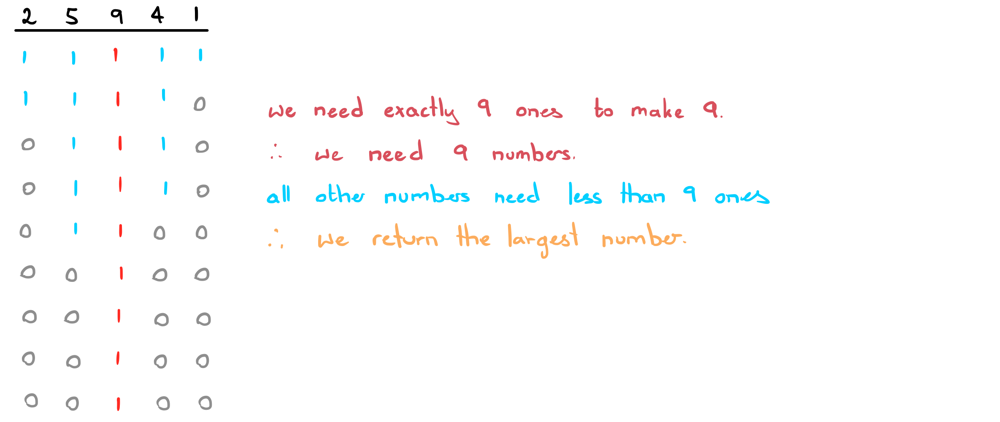 2 5 9 4 1
1 1 1 1 1
1 1 1 1 0
0 1 1 1 0
0 1 1 1 0
0 1 1 0 0
0 0 1 0 0
0 0 1 0 0
0 0 1 0 0
0 0 1 0 0
we need exactly 9 ones to make 9.
∴ we need 9 numbers.
all other numbers need less than 9 ones
∴ we return the largest number.